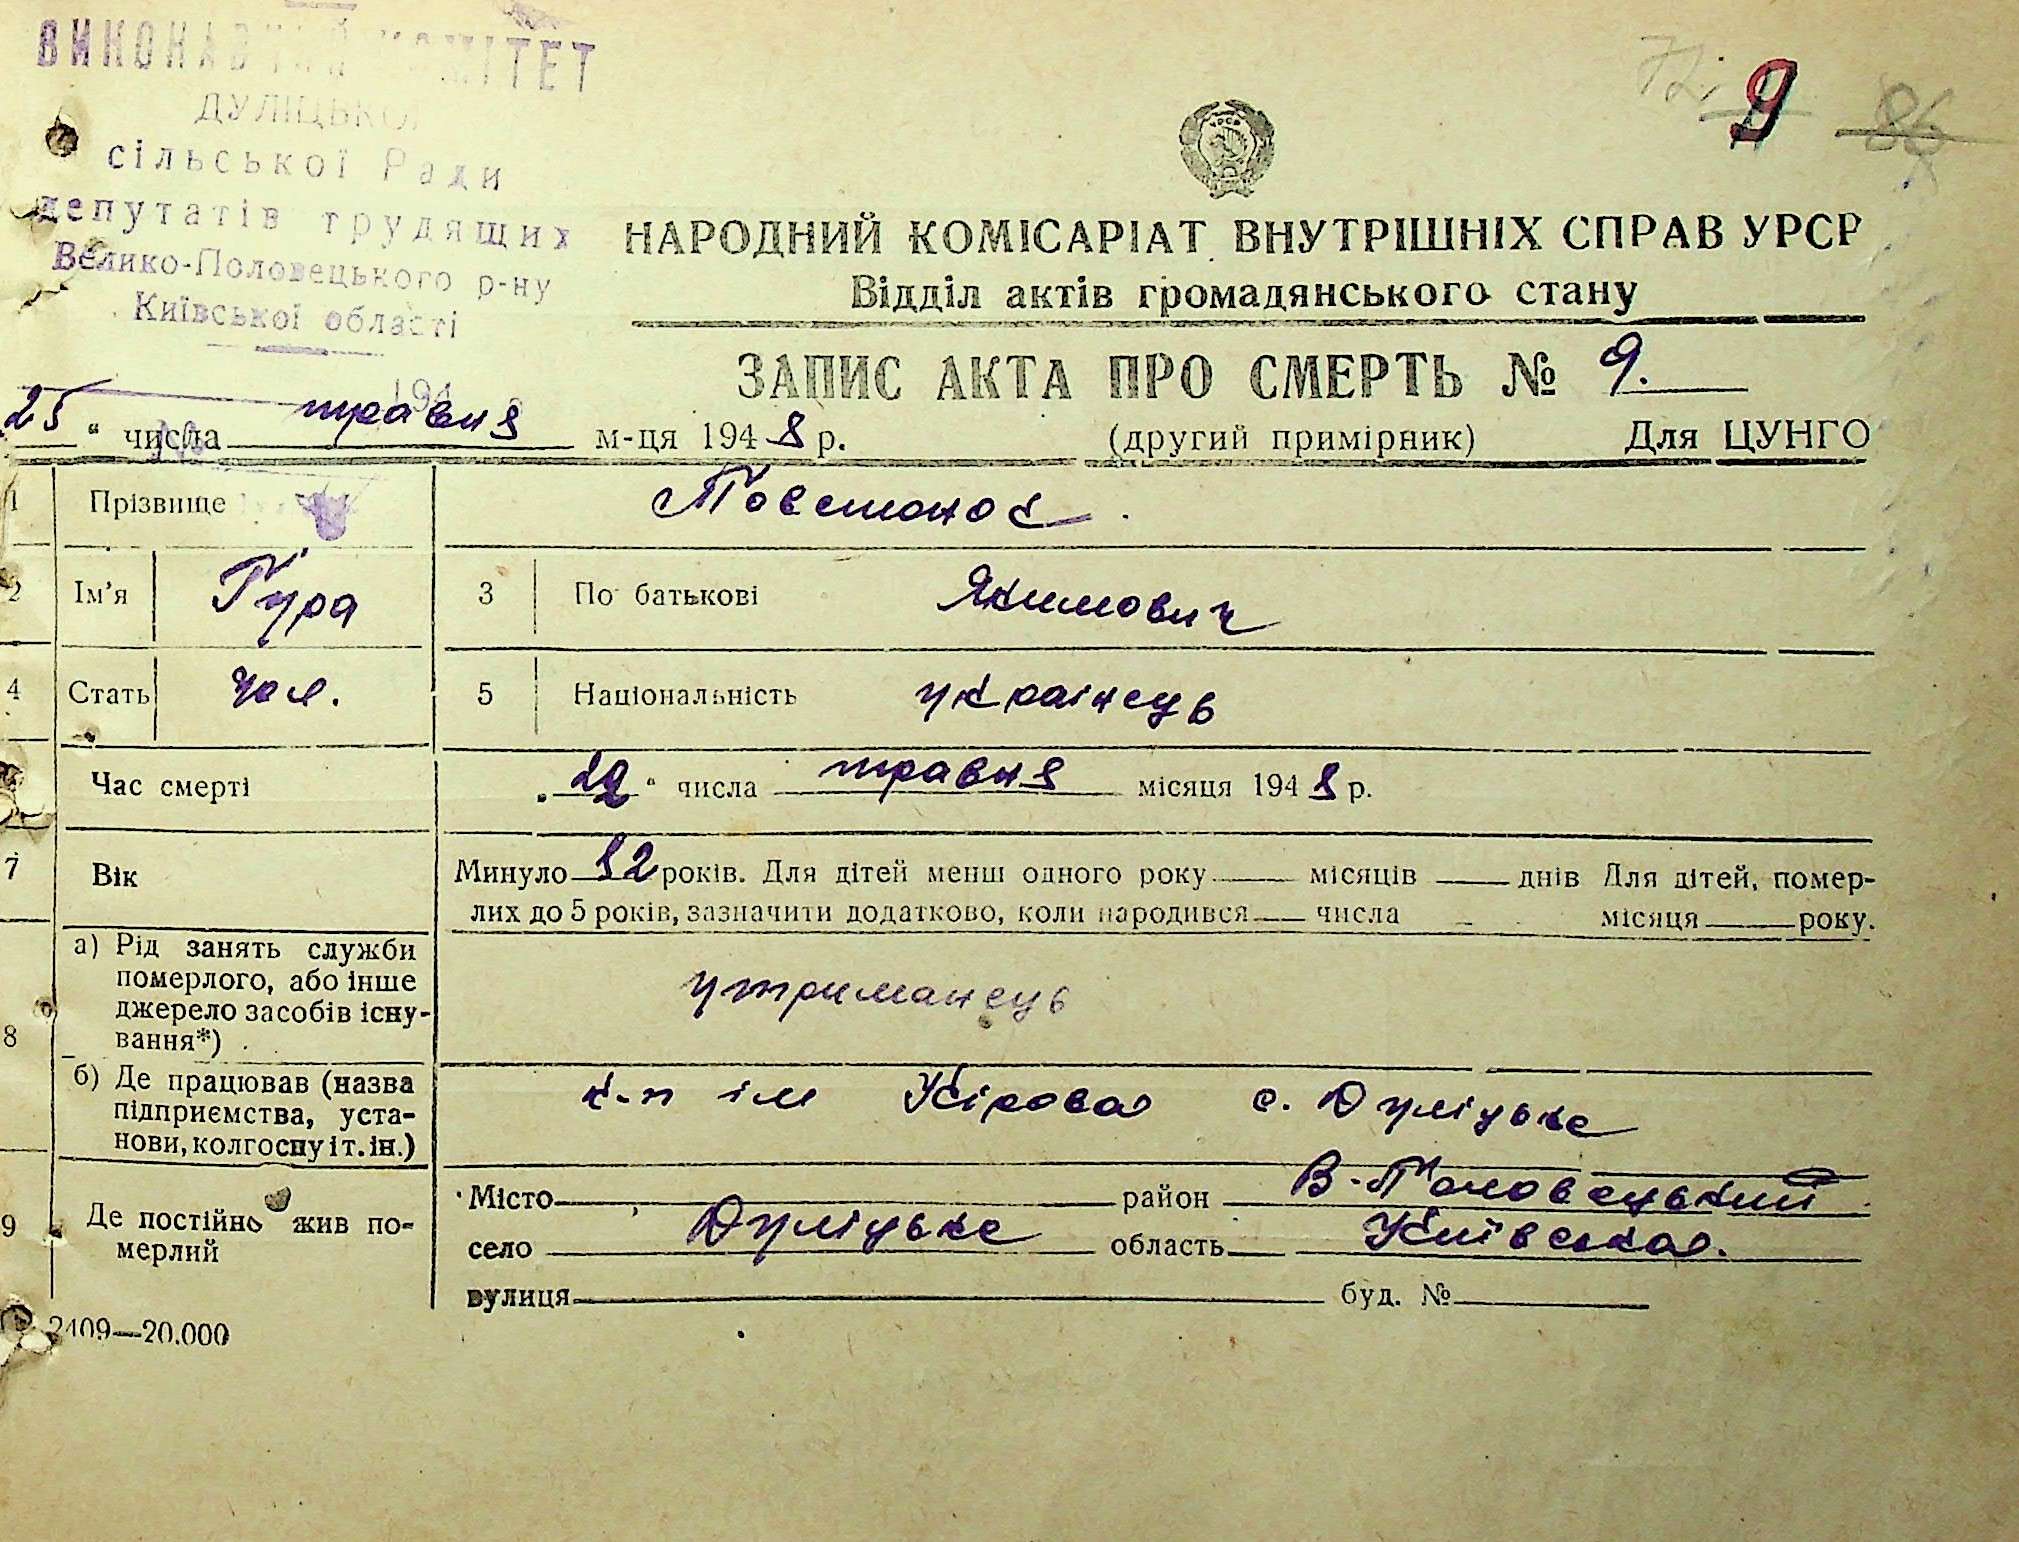 ВИКОНАВЧИЙ КОМІТЕТ
ДУЛІЦЬКОЇ
сільської Ради
депутатів трудящих
Велико-Половецького р-ну
Київської області
9
86
НАРОДНИЙ КОМІСАРІАТ ВНУТРІШНІХ СПРАВ УРСР
Відділ актів громадянського стану
ЗАПИС АКТА ПРО СМЕРТЬ № 9.
25 " числа травня м-ця 1948 р. (другий примірник) Для ЦУНГО
1 Прізвище Товстоног
2 Ім'я Гура 3 По батькові Якимович
4 Стать чол. 5 Національність українець
Час смерті „22" числа травня місяця 1948 р.
7 Вік Минуло 82 років. Для дітей менш одного року місяців днів Для дітей, помер-
лих до 5 років, зазначити додатково, коли народився числа місяця року.
8 а) Рід занять служби
померлого, або інше
джерело засобів існу-
вання*)
утриманець
б) Де працював (назва
підприємства, уста-
нови, колгоспу і т. ін.)
к-п ім Кірова с. Дуліцьке
9 Де постійно жив по-
мерлий
Місто район В-Половецький
село Дуліцьке область Київська.
вулиця буд. №
2409—20.000